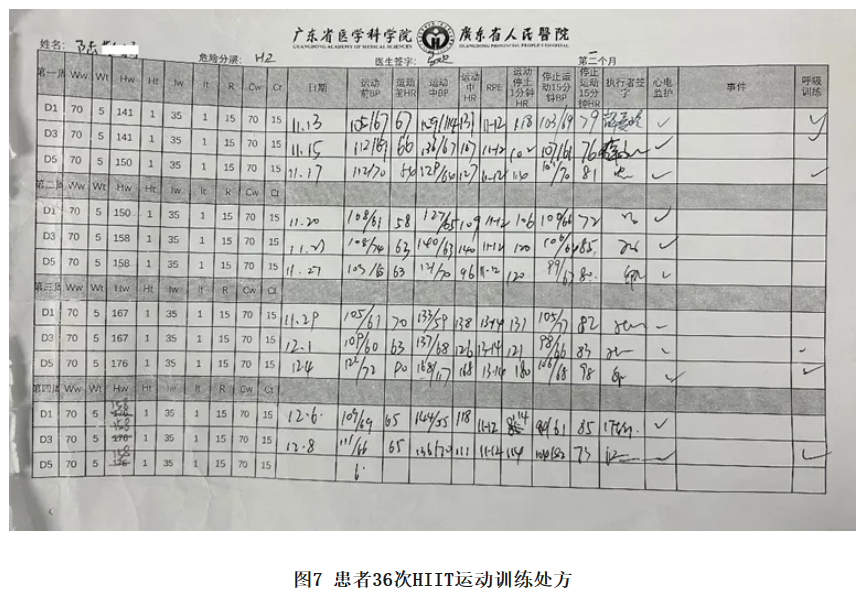 广东省医学科学院 广东省人民醫院
GUANGDONG ACADEMY OF MEDICAL SCIENCES GUANGDONG PROVINCIAL PEOPLE'S HOSPITAL
姓名: 危险分层: H2 医生签字: 第二个月
第一周 Ww Wt Hw Ht Iw It R Cw Ct 日期 运动前BP 运动前HR 运动中BP 运动中HR RPE 运动停止1分钟HR 停止运动15分钟BP 停止运动15分钟HR 执行者签字 心电监护 事件 呼吸训练
D1 70 5 141 1 35 1 15 70 15 11.13 105/67 67 109/114 131 11-12 118 103/69 79 ✓ ✓
D3 70 5 141 1 35 1 15 70 15 11.15 112/69 66 136/67 107 11-12 107/61 76 ✓ ✓
D5 70 5 150 1 35 1 15 70 15 11.17 112/70 127 11-12 81 ✓ ✓
第二周 Ww Wt Hw Ht Iw It R Cw Ct
D1 70 5 150 1 35 1 15 70 15 11.20 108/61 58 127/65 109 11-12 106 109/66 72 ✓
D3 70 5 158 1 35 1 15 70 15 108/74 63 140/63 140 11-12 120 85 ✓ ✓
D5 70 5 158 1 35 1 15 70 15 11.27 63 121/70 96 11-12 120 99/67 80 ✓
第三周 Ww Wt Hw Ht Iw It R Cw Ct
D1 70 5 167 1 35 1 15 70 15 11.29 105/61 70 133/59 138 13-14 131 105/77 82
D3 70 5 167 1 35 1 15 70 15 12.1 109/60 63 137/68 126 13-14 121 98/66 83
D5 70 5 176 1 35 1 15 70 15 12.4 122/72 80 168 13-14 180 106/68 98 ✓ ✓
第四周 Ww Wt Hw Ht Iw It R Cw Ct
D1 70 5 158 1 35 1 15 70 15 12.6. 109/69 65 144/55 118 11-12 114 85 ✓
D3 70 5 158 170 1 35 1 15 70 15 12.8 111/66 65 136/70 111 11-12 114 73 ✓
D5 70 5 158 176 1 35 1 15 70 15 6.
图7 患者36次HIIT运动训练处方